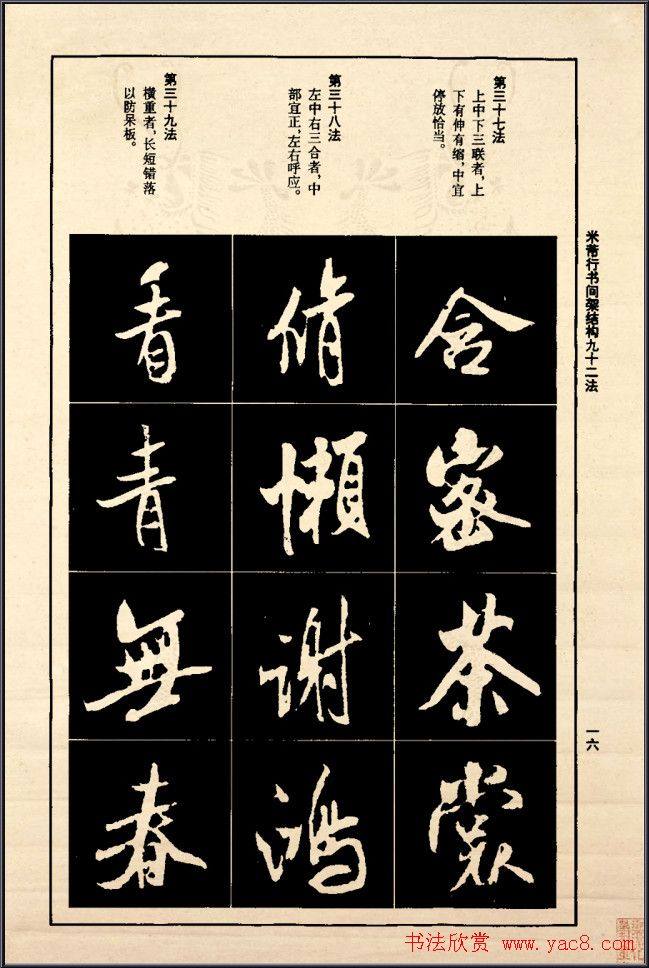 米芾行书间架结构九十二法
一六
第三十七法
上中下三联者，上
下有伸有缩，中宜
停放恰当。
含
密
茶
裳
第三十八法
左中右三合者，中
部宜正，左右呼应。
脩
懶
谢
鸿
第三十九法
横重者，长短错落
以防呆板。
看
青
無
春
书法欣赏 www.yac8.com